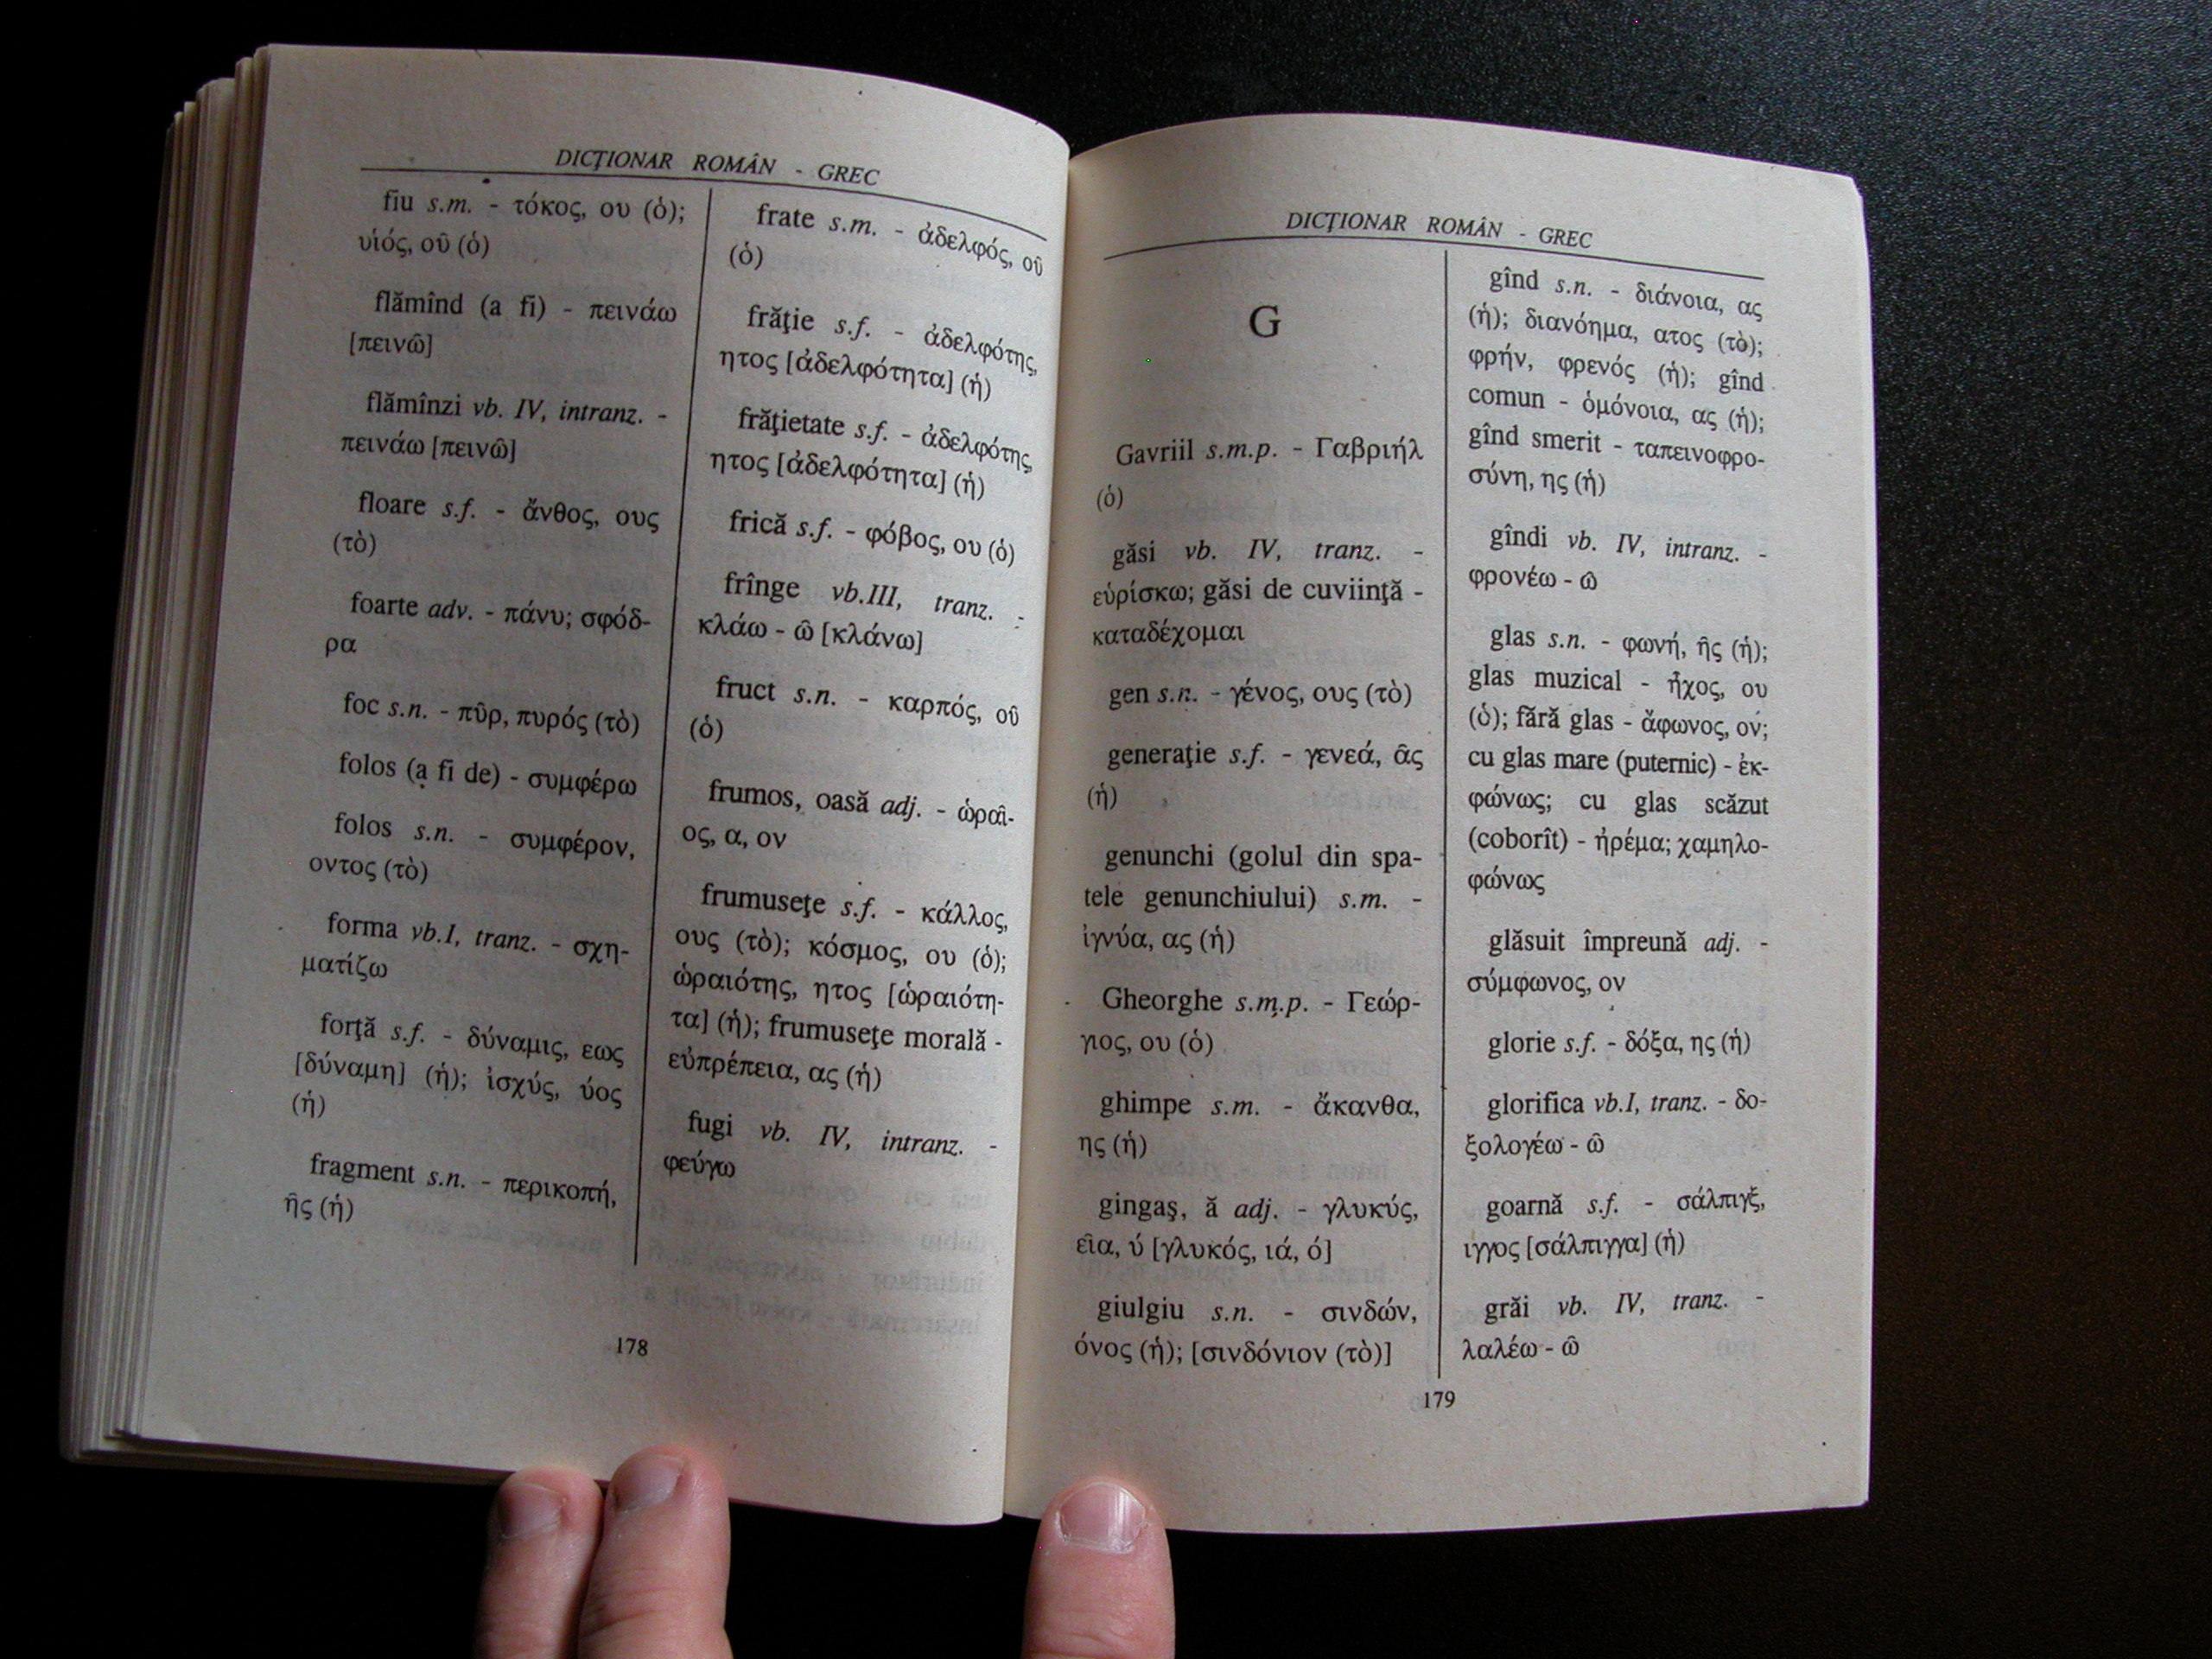 DICŢIONAR ROMÂN - GREC
fiu s.m. - τόκος, ου (ὁ);
υἱός, οῦ (ὁ)
flămînd (a fi) - πεινάω
[πεινῶ]
flămînzi vb. IV, intranz. -
πεινάω [πεινῶ]
floare s.f. - ἄνθος, ους
(τὸ)
foarte adv. - πάνυ; σφόδ-
ρα
foc s.n. - πῦρ, πυρός (τὸ)
folos (a fi de) - συμφέρω
folos s.n. - συμφέρον,
οντος (τὸ)
forma vb.I, tranz. - σχη-
ματίζω
forţă s.f. - δύναμις, εως
[δύναμη] (ἡ); ἰσχύς, ύος
(ἡ)
fragment s.n. - περικοπή,
ῆς (ἡ)
frate s.m. - ἀδελφός, οῦ
(ὁ)
frăţie s.f. - ἀδελφότης,
ητος [ἀδελφότητα] (ἡ)
frăţietate s.f. - ἀδελφότης,
ητος [ἀδελφότητα] (ἡ)
frică s.f. - φόβος, ου (ὁ)
frînge vb.III, tranz. -
κλάω - ῶ [κλάνω]
fruct s.n. - καρπός, οῦ
(ὁ)
frumos, oasă adj. - ὡραῖ-
ος, α, ον
frumuseţe s.f. - κάλλος,
ους (τὸ); κόσμος, ου (ὁ);
ὡραιότης, ητος [ὡραιότη-
τα] (ἡ); frumuseţe morală -
εὐπρέπεια, ας (ἡ)
fugi vb. IV, intranz. -
φεύγω
178
DICŢIONAR ROMÂN - GREC
G
Gavriil s.m.p. - Γαβριήλ
(ὁ)
găsi vb. IV, tranz. -
εὑρίσκω; găsi de cuviinţă -
καταδέχομαι
gen s.n. - γένος, ους (τὸ)
generaţie s.f. - γενεά, ᾶς
(ἡ)
genunchi (golul din spa-
tele genunchiului) s.m. -
ἰγνύα, ας (ἡ)
Gheorghe s.m.p. - Γεώρ-
γιος, ου (ὁ)
ghimpe s.m. - ἄκανθα,
ης (ἡ)
gingaş, ă adj. - γλυκύς,
εῖα, ύ [γλυκός, ιά, ό]
giulgiu s.n. - σινδών,
όνος (ἡ); [σινδόνιον (τὸ)]
gînd s.n. - διάνοια, ας
(ἡ); διανόημα, ατος (τὸ);
φρήν, φρενός (ἡ); gînd
comun - ὁμόνοια, ας (ἡ);
gînd smerit - ταπεινοφρο-
σύνη, ης (ἡ)
gîndi vb. IV, intranz. -
φρονέω - ῶ
glas s.n. - φωνή, ῆς (ἡ);
glas muzical - ἦχος, ου
(ὁ); fără glas - ἄφωνος, ον;
cu glas mare (puternic) - ἐκ-
φώνως; cu glas scăzut
(coborît) - ἠρέμα; χαμηλο-
φώνως
glăsuit împreună adj. -
σύμφωνος, ον
glorie s.f. - δόξα, ης (ἡ)
glorifica vb.I, tranz. - δο-
ξολογέω - ῶ
goarnă s.f. - σάλπιγξ,
ιγγος [σάλπιγγα] (ἡ)
grăi vb. IV, tranz. -
λαλέω - ῶ
179